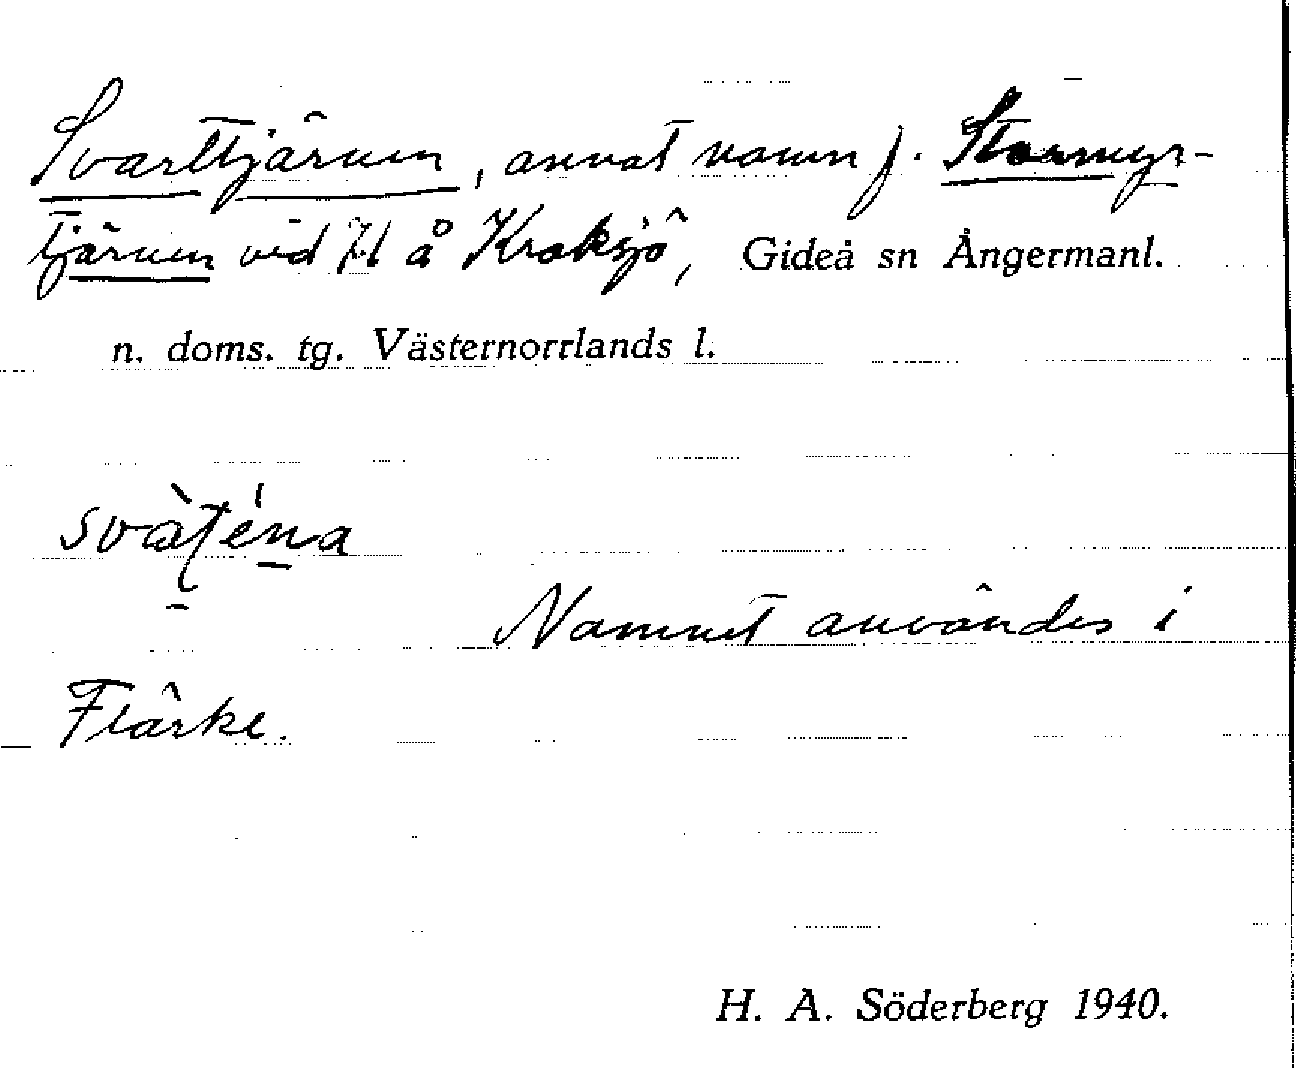 Svarttjärnen, annat namn f. Stormyr-
tjärnen vid H å Kroksjö, Gideå sn Ångermanl.
n. doms. tg. Västernorrlands l.
Namnet användes i
Flärke.
H. A. Söderberg 1940.